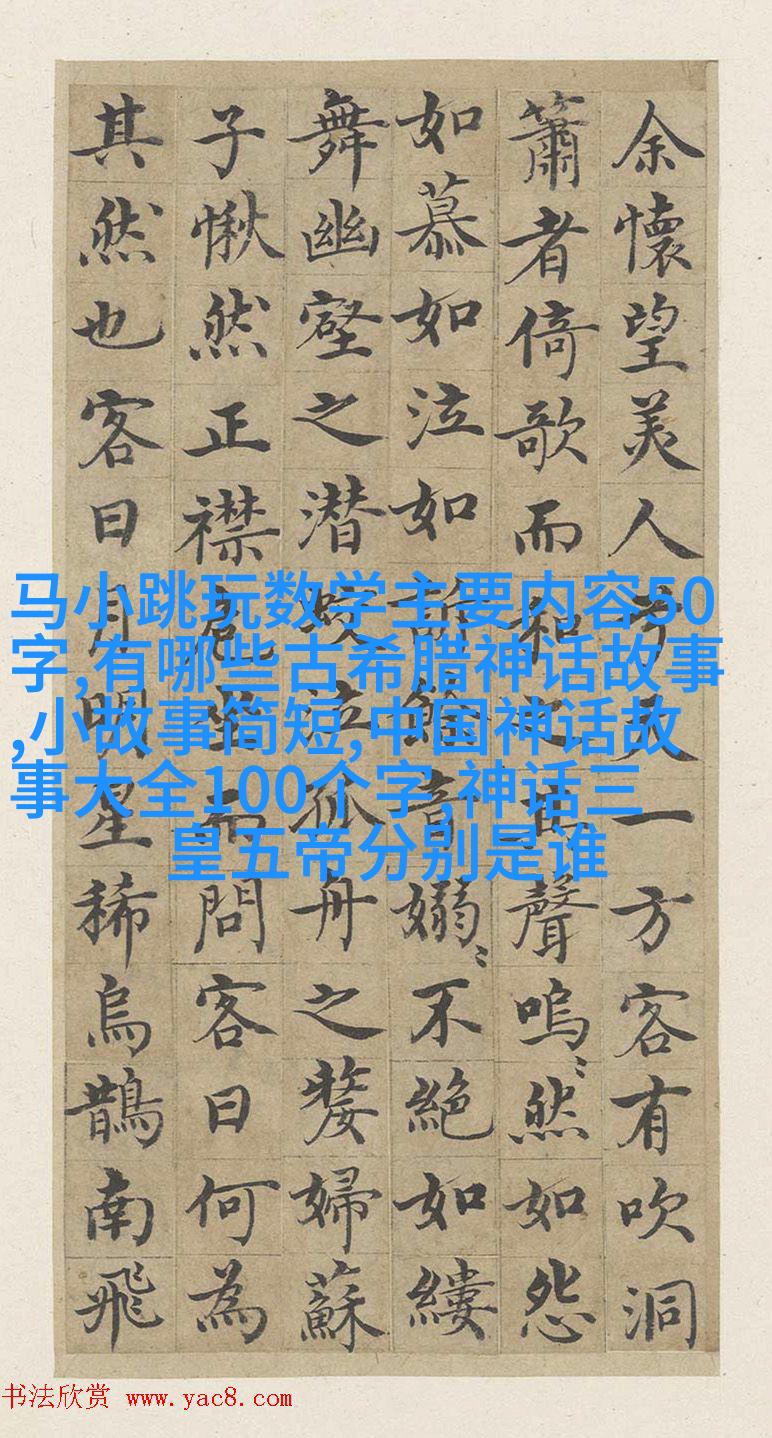 余懷望美人兮天一方客有吹洞
簫者倚歌而和之其聲嗚〻然如怨
如慕如泣如訴餘音嫋〻不絕如縷
舞幽壑之潜蛟泣孤舟之嫠婦蘇
子愀然正襟危坐而問客曰何為
其然也客曰月明星稀烏鵲南飛
马小跳玩数学主要内容50
字,有哪些古希腊神话故事
,小故事简短,中国神话故
事大全100个字,神话三
皇五帝分别是谁
书法欣赏 www.yac8.com